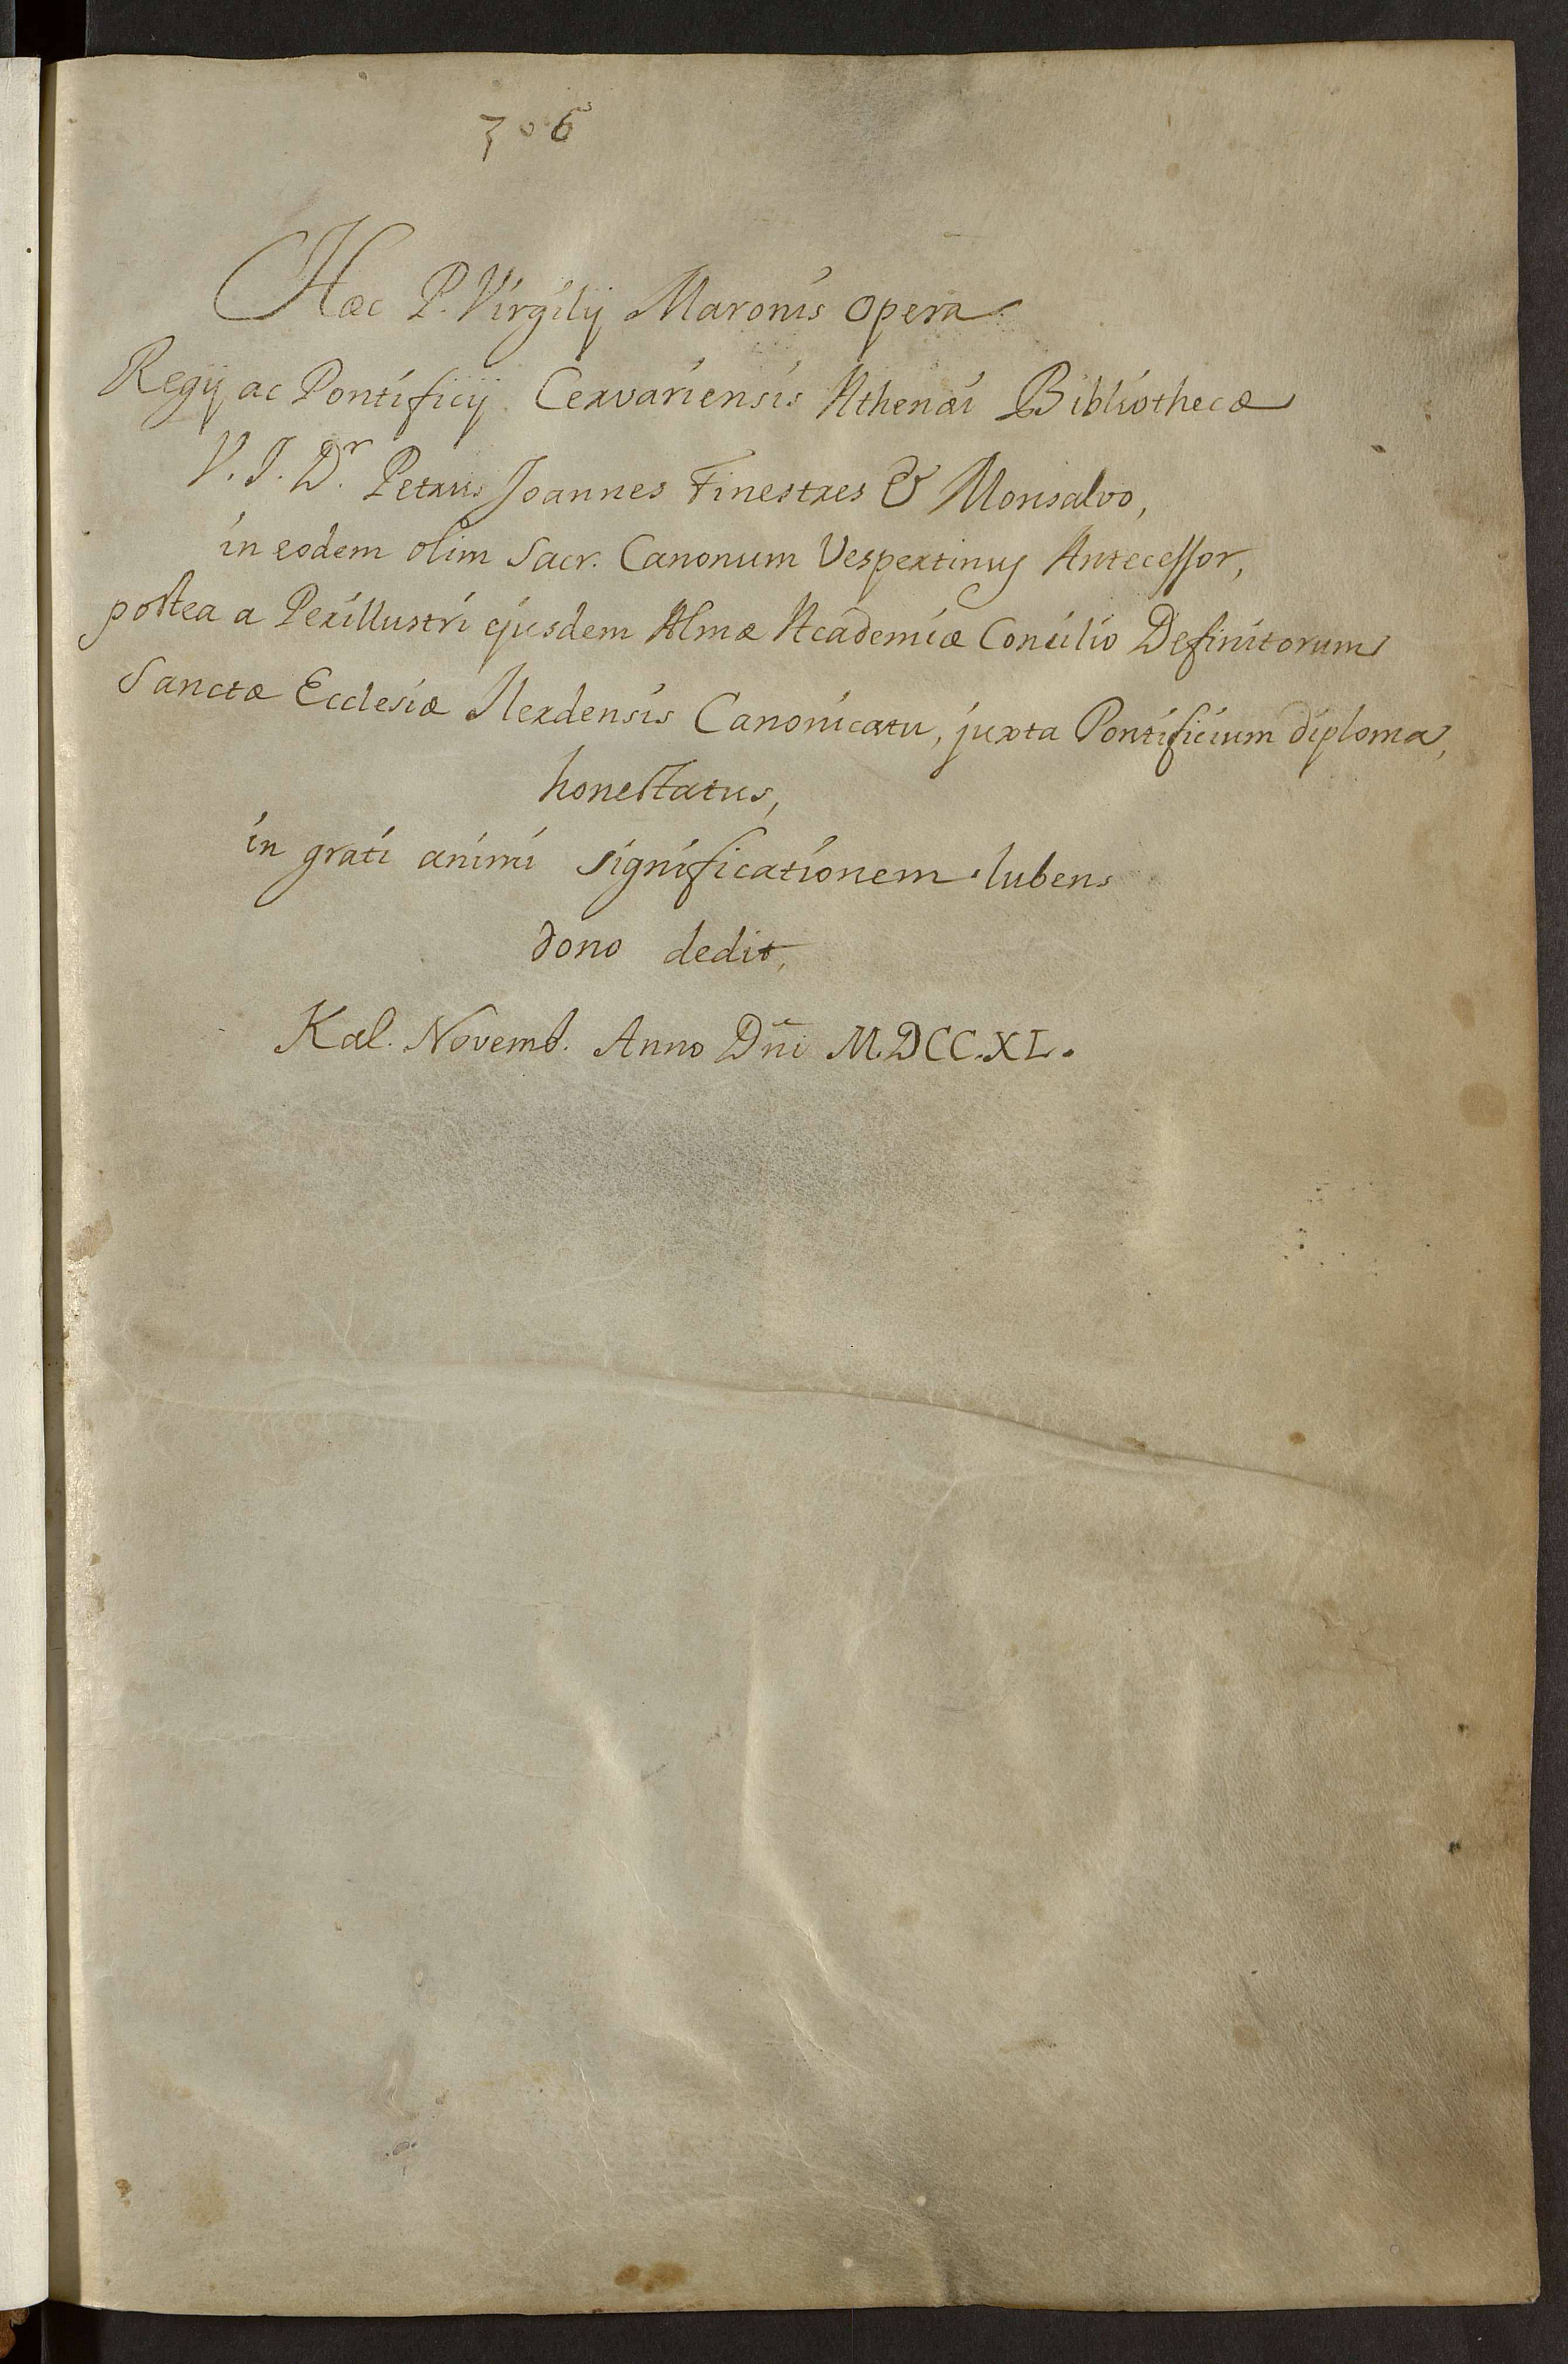 706
Hæc P. Virgilij Maronis opera
Regij ac Pontificij Cervariensis Athenæi Bibliothecæ
V. J. Dr. Petrus Joannes Finestres & Monsalvo,
in eodem olim Sacr. Canonum Vespertinus Antecessor,
postea a Perillustri ejusdem Almæ Academiæ Concilio Definitorum
Sanctæ Ecclesiæ Ilerdensis Canonicatu, juxta Pontificium diploma,
honestatus,
in grati animi significationem lubens
dono dedit,
Kal. Novemb. Anno Dñi M.DCC.XL.